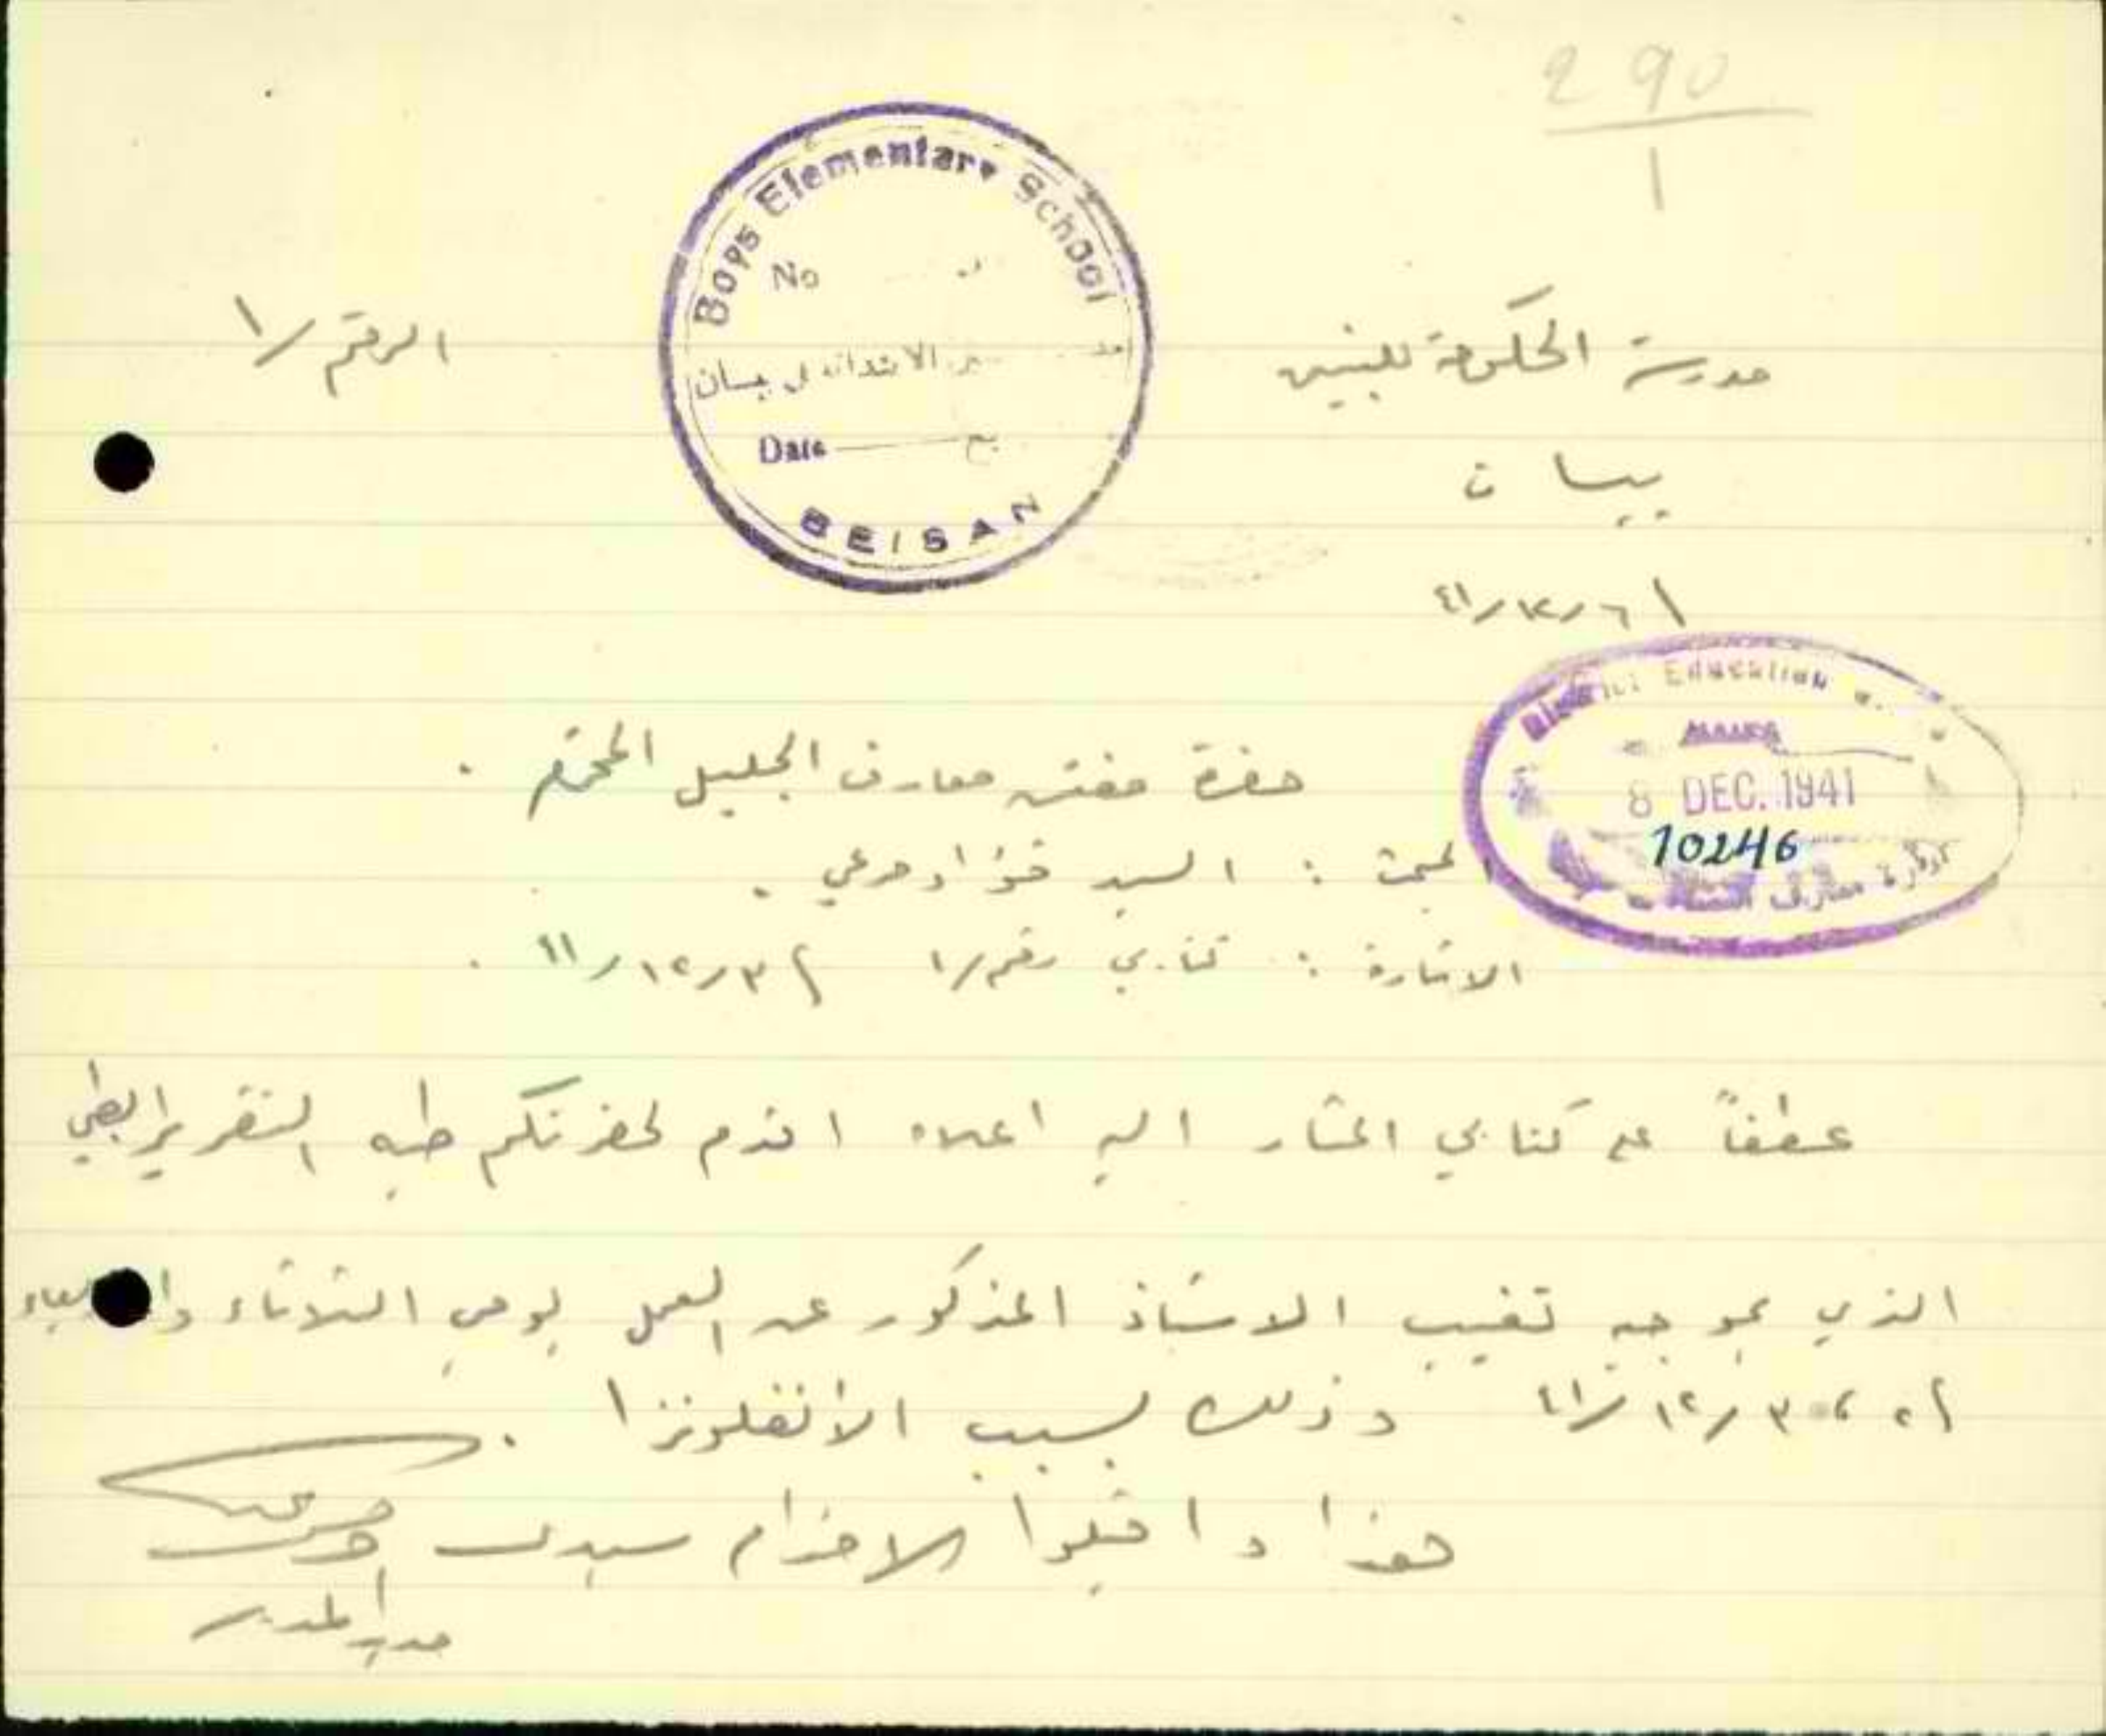 290
1
Boys Elementary School
No
الابتدائية في بيسان
Date
BEISAN
الرقم /١
مدرسة الحكومة للبنين
بيسان
٦/١٢/٤١
District Education
8 DEC. 1941
10246
معارف
حضرة مفتش معارف الجليل المحترم .
المبحث : السيد فؤاد مرعي .
الاشارة : كتابي رقم /١ ٣/١٢/٤١ .
عطفاً على كتابي المشار اليه اعلاه اقدم لحضرتكم طيه التقرير الطبي
الذي بموجبه تغيب الاستاذ المذكور عن العمل يومي الثلاثاء والاربعاء
٢ ، ٣/١٢/٤١ وذلك بسبب الانفلونزا .
هذا واقبلوا الاحترام سيدي
مدير المدرسة